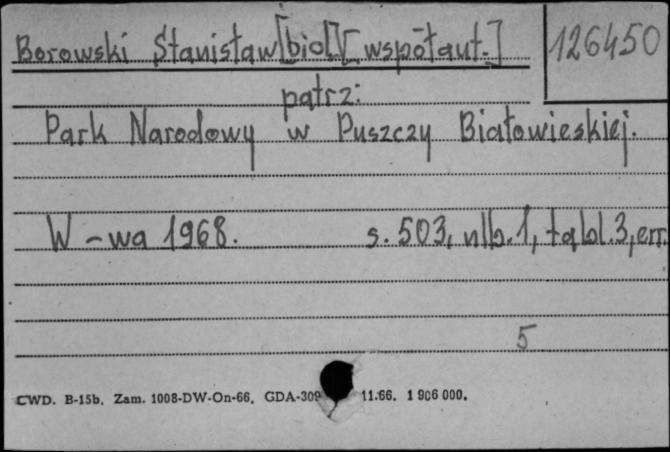 Borowski Stanisław [biol.] [współaut.] 126450
patrz:
Park Narodowy w Puszczy Białowieskiej.
W-wa 1968. s. 503, nlb. 1, tabl. 3, err.
5
CWD. B-15b. Zam. 1008-DW-On-66. GDA-309 11.66. 1 906 000.